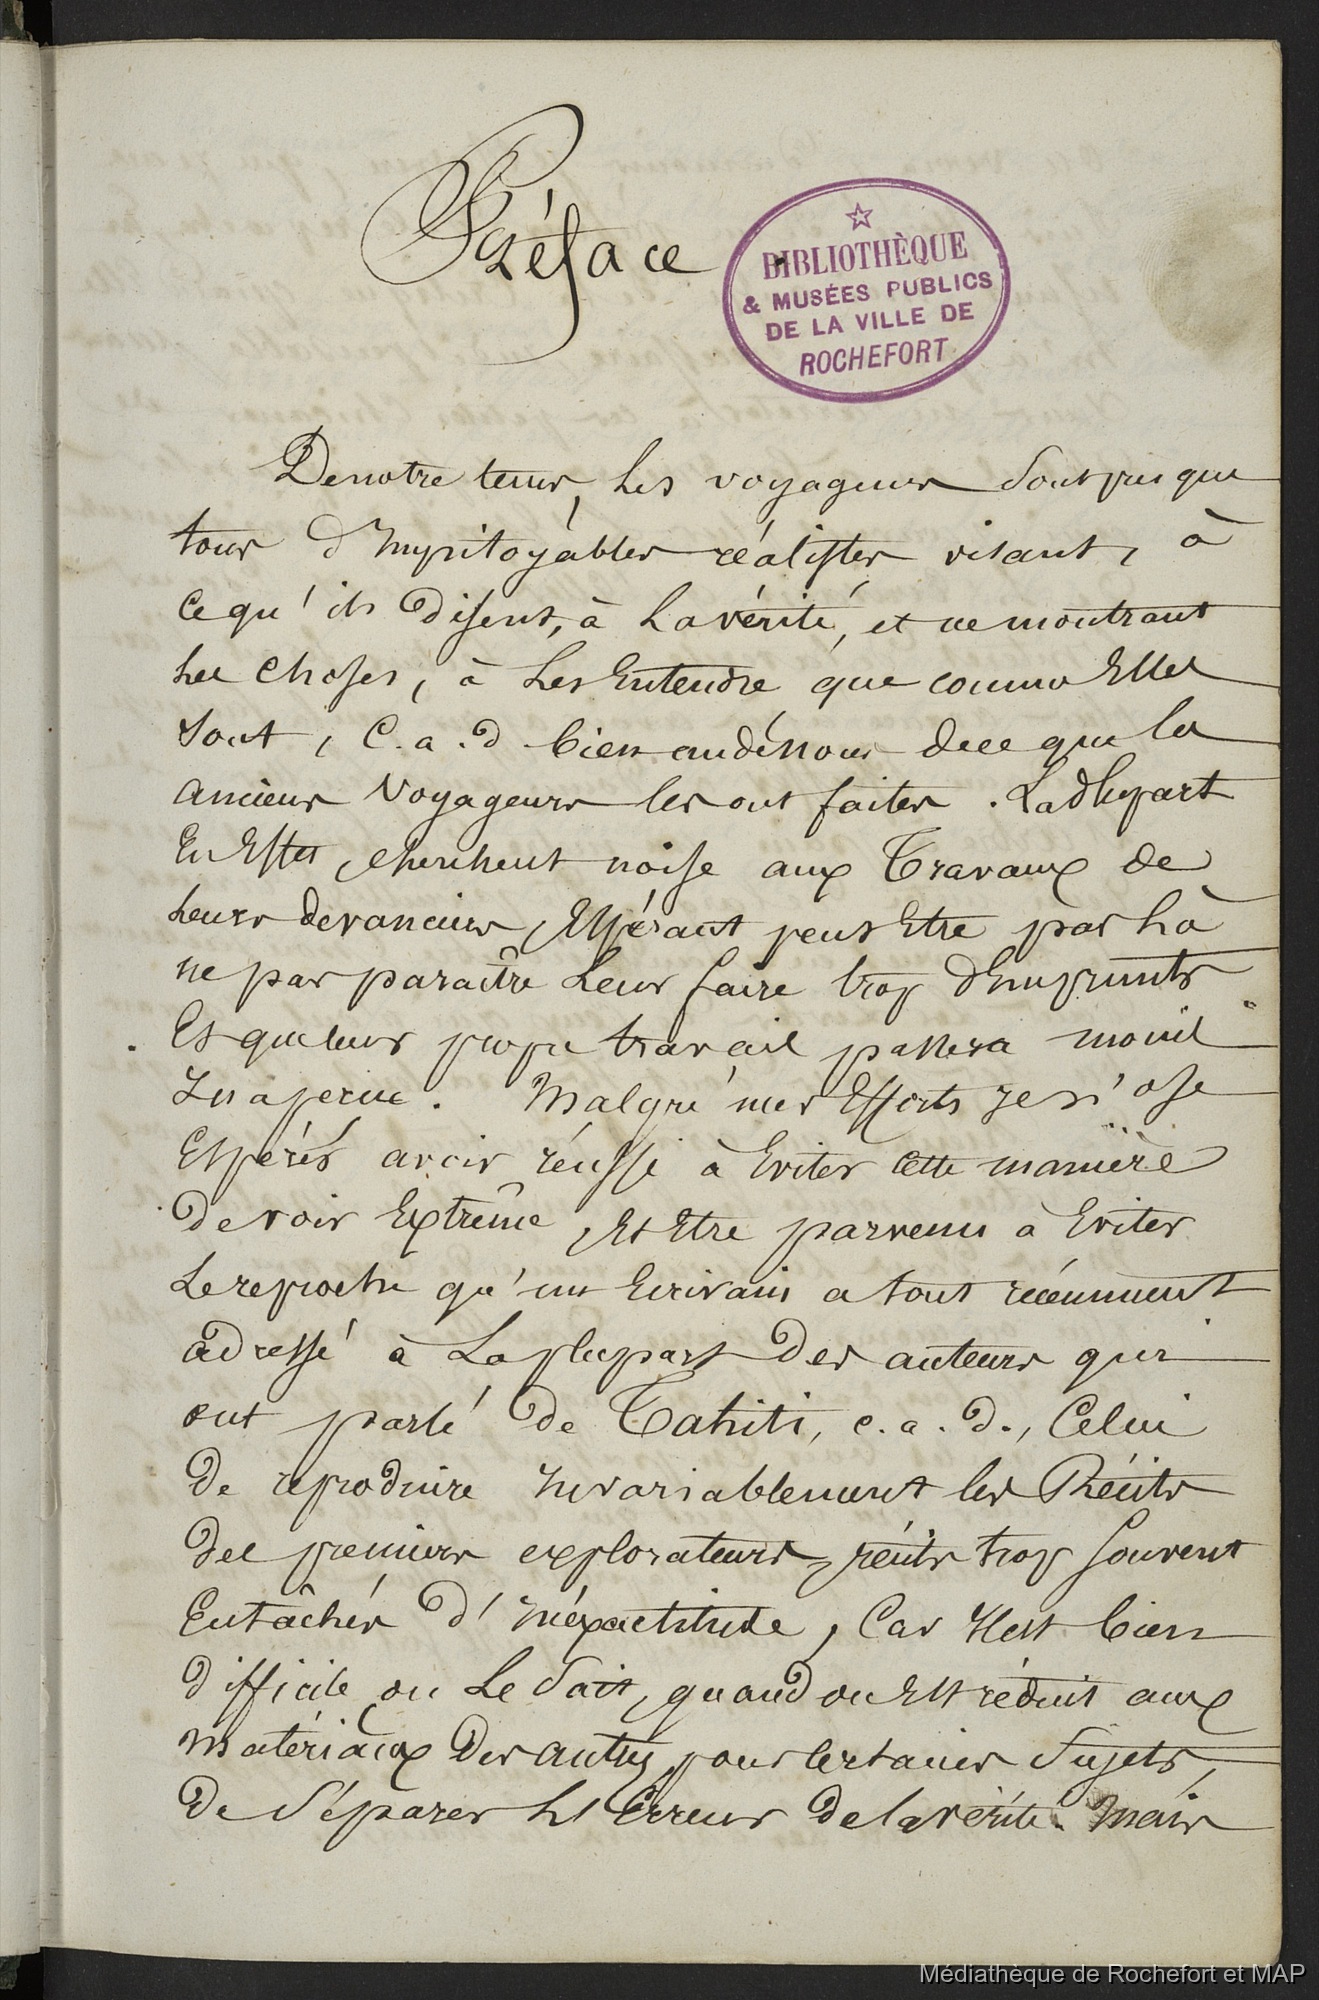 Préface
☆
BIBLIOTHÈQUE
& MUSÉES PUBLICS
DE LA VILLE DE
ROCHEFORT
De notre tems, les voyageurs sont presque
tous d'impitoyables réalistes visant, à
ce qu'ils disent, à la vérité, et ne montrant
les choses, à les entendre que comme Elles
sont, c.a.d bien au dessous de ce que les
anciens voyageurs les ont faites. La plupart
En Effet, cherchent noise aux Travaux de
leurs devanciers, Espérant peut Etre par là
ne pas paraître leur faire trop d'Emprunts
Et que leur propre travail passera moins
Inaperçu. Malgré mes Efforts je n'ose
Espérer avoir réussi à Eviter cette manière
de voir Extrême, Et Etre parvenu à Eviter
le reproche qu'un Ecrivain a tout récemment
adressé à la plupart des auteurs qui
ont parlé de Tahiti, c.a.d., Celui
de reproduire Invariablement les Récits
des premiers explorateurs, récits trop souvent
Entâchés d'Inéxactitude, Car Il est bien
difficile on le sait, quand on Est réduit aux
matériaux des autres, pour certains sujets,
de séparer les Erreurs de la vérité. Mais
Médiathèque de Rochefort et MAP